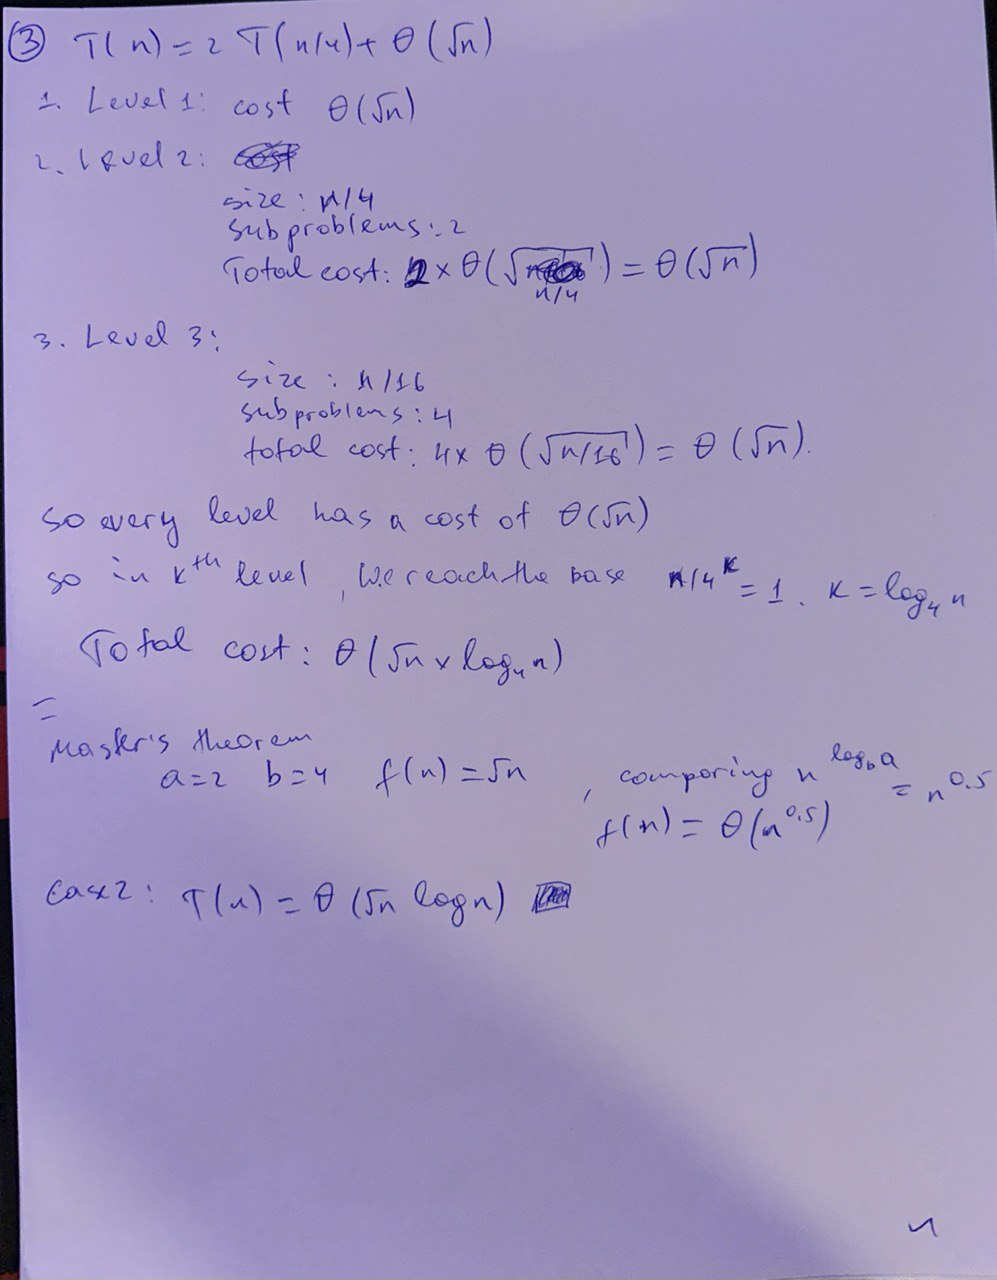 ③ T(n) = 2 T(n/4) + θ(√n)
1. Level 1: cost θ(√n)
2. Level 2:
size : n/4
subproblems : 2
Total cost: 2 × θ(√n/4) = θ(√n)
3. Level 3:
size : n/16
subproblems : 4
total cost: 4 × θ(√n/16) = θ(√n).
so every level has a cost of θ(√n)
so in kth level, we reach the base n/4^k = 1. k = log₄ n
Total cost: θ(√n × log₄ n)
=
Master's theorem
a=2 b=4 f(n) = √n , comparing n^log_b a = n^0.5
f(n) = θ(n^0.5)
case 2: T(n) = θ(√n log n)